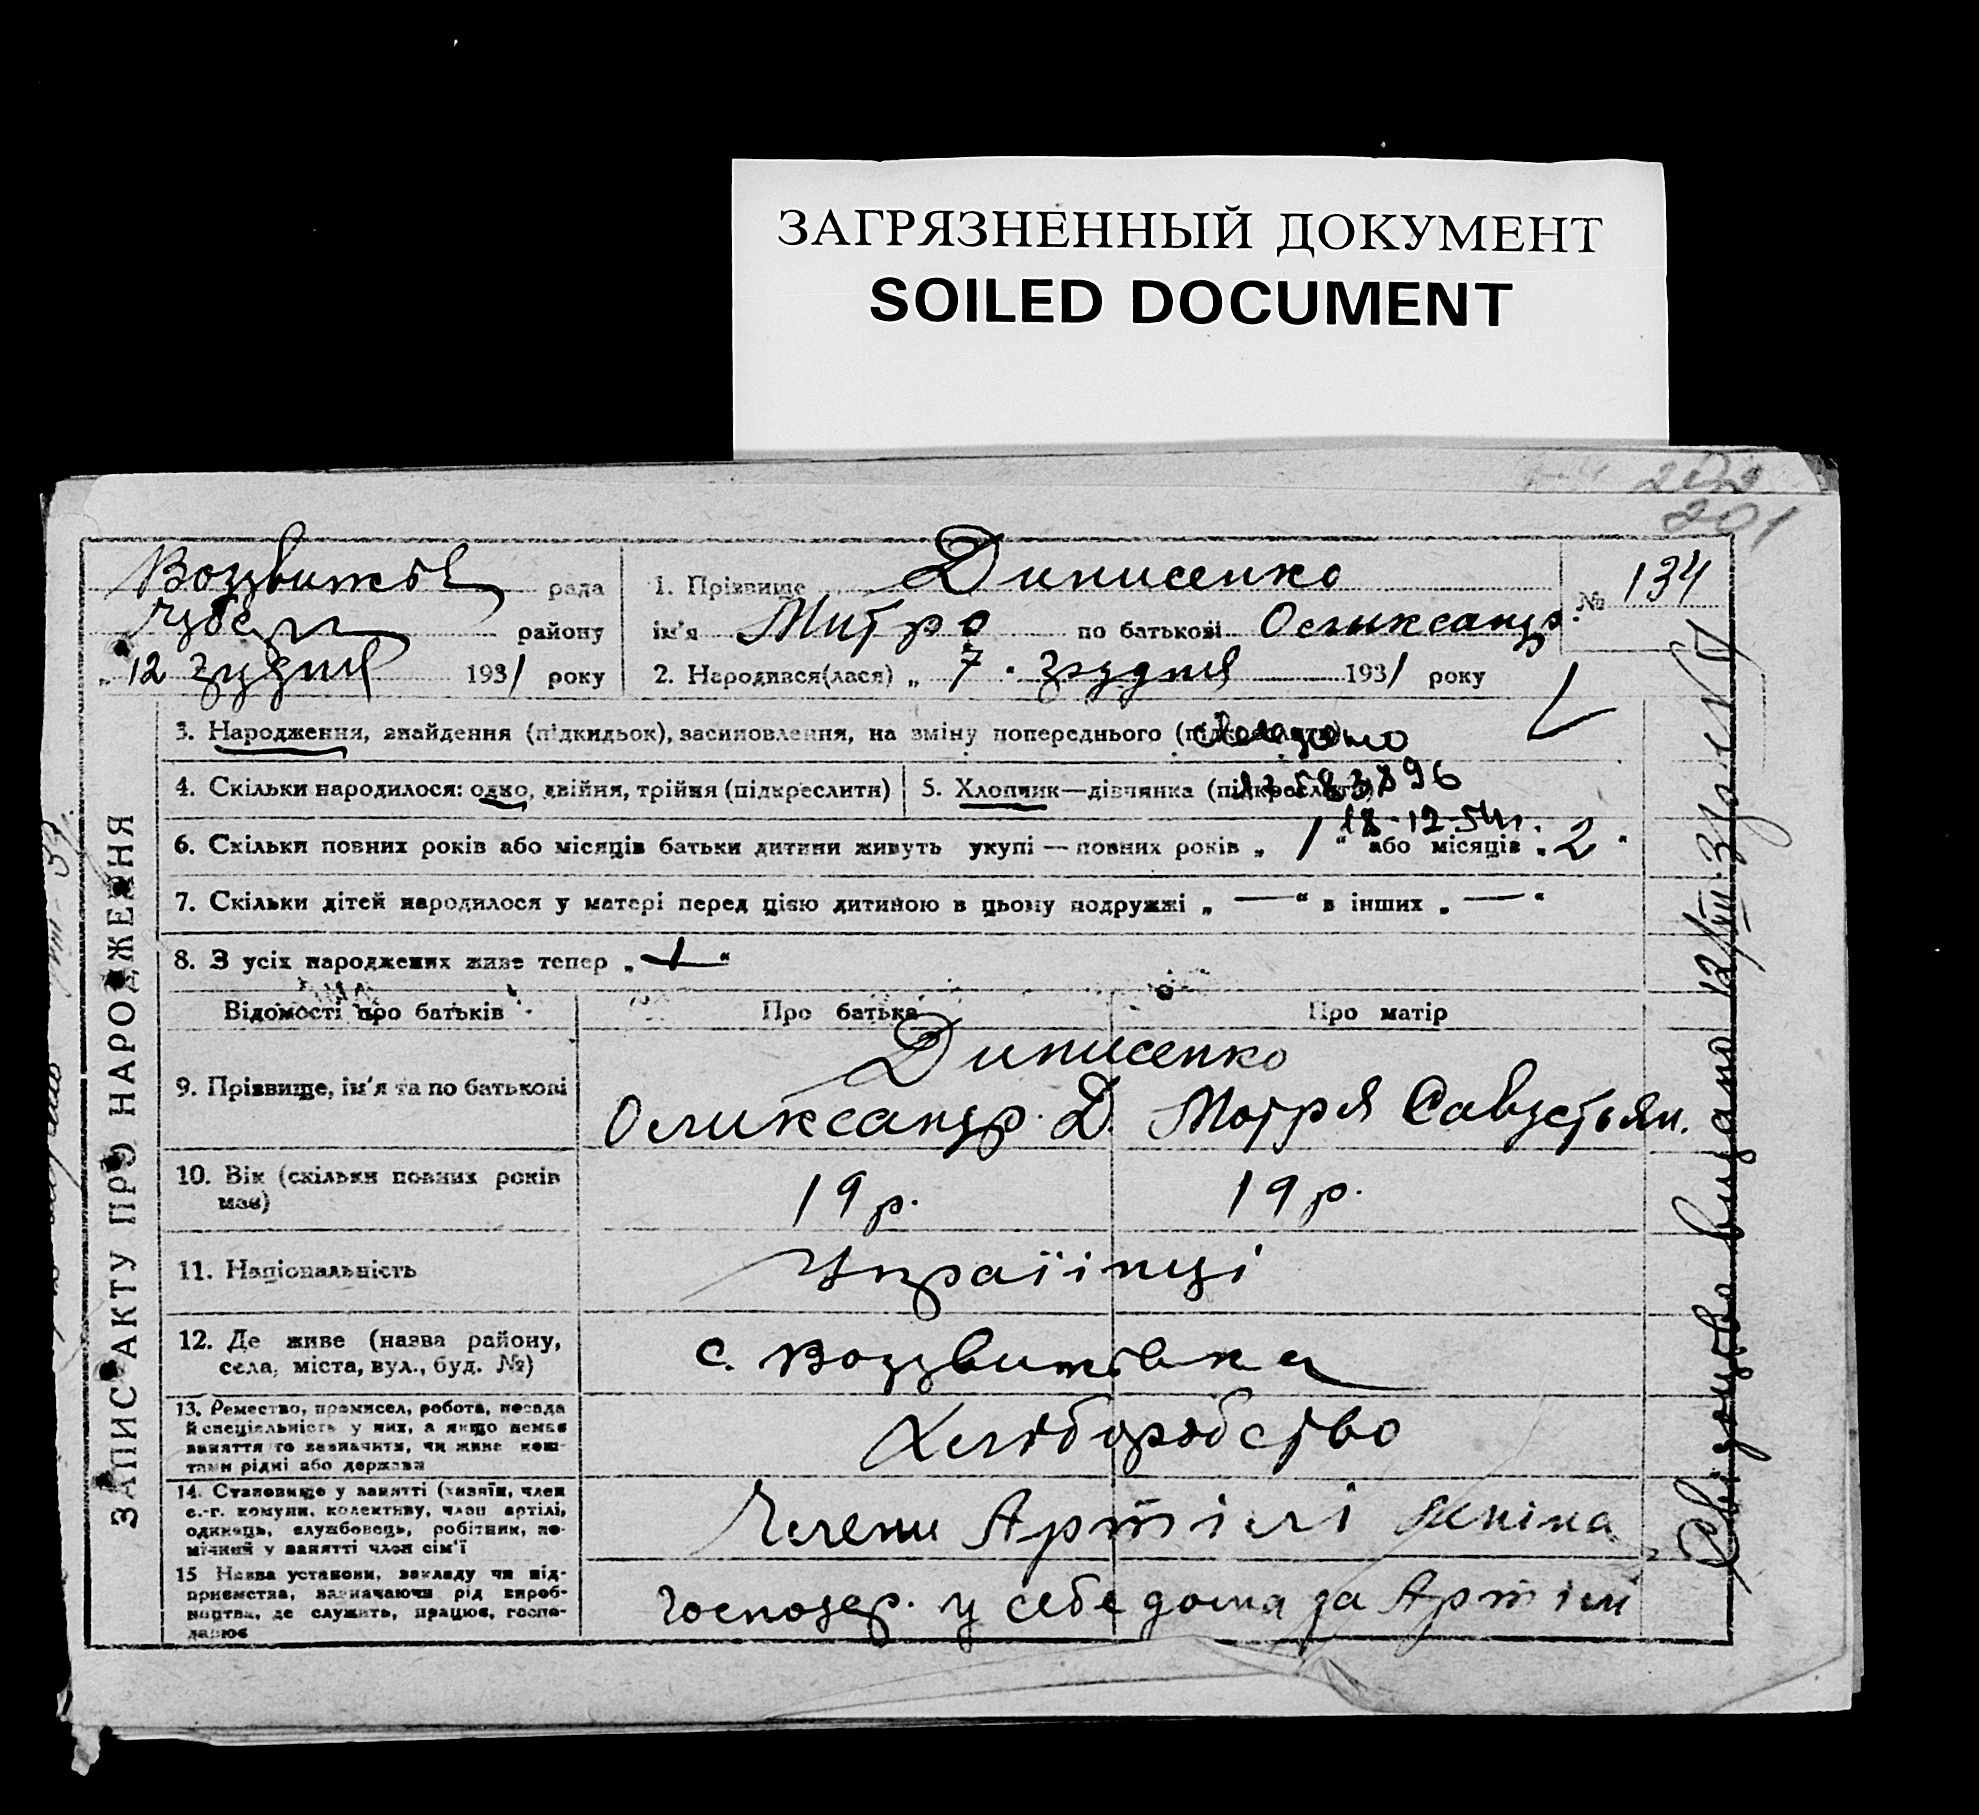 ЗАГРЯЗНЕННЫЙ ДОКУМЕНТ
SOILED DOCUMENT
201
ЗАПИС АКТУ ПРО НАРОДЖЕННЯ
Воздвижів рада
району
„ 12 грудня 1931 року
1. Прізвище Динисенко
ім'я Митро по батькові Олександр.
2. Народився(лася) „ 7 " грудня 1931 року
№ 134
3. Народження, знайдення (підкидьок), засиновлення, на зміну попереднього (підкреслити)
4. Скільки народилося: одно, двійня, трійня (підкреслити)
5. Хлопчик—дівчинка (підкреслити)
18-12-54 г.
6. Скільки повних років або місяців батьки дитини живуть укупі — повних років „ 1 “ або місяців „ 2 “
7. Скільки дітей народилося у матері перед цією дитиною в цьому подружжі „ — “ в інших „ — “
8. З усіх народжених живе тепер „ 1 “
Відомості про батьків
Про батька
Про матір
9. Прізвище, ім'я та по батькові
Динисенко
Олександр. Д. Мотря Савустьян.
10. Вік (скільки повних років має)
19 р. 19 р.
11. Національність
Україінці
12. Де живе (назва району,
села, міста, вул., буд. №)
с. Воздвижівка
13. Ремество, промисел, робота, посада
й спеціяльність у них, а якщо немає
заняття то зазначити, чи живе кош-
тами рідні або держави
Хліборобство
14. Становище у занятті (хазяїн, член
с.-г. комуни, колективу, член артілі,
одинець, службовець, робітник, по-
мічний у занятті член сім'ї
Члени Артілі
15 Назва установи, закладу чи під-
приємства, зазначаючи рід вироб-
ництва, де служить, працює, госпо-
дарює
господар. у себе дома да Артілі
Свідоцтво видано 12/XII